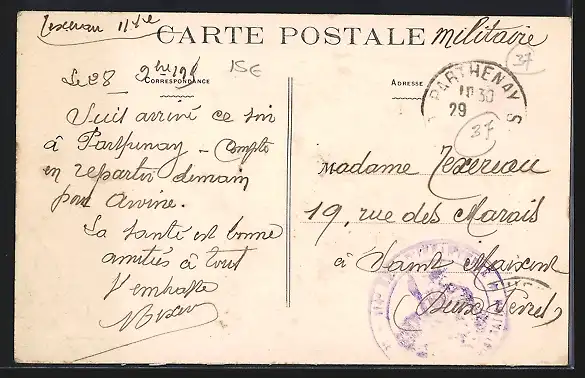 CARTE POSTALE militaire
15€
37
CORRESPONDANCE
ADRESSE
Le 28
PARTHENAY
29
37
Suis arrivé ce soir
à Parthenay - Compte
en repartir demain
pour
La santé est bonne
amitiés à tout
T'embrasse
Madame Texereau
19, rue des Marais
à Saint Maixent
Deux Sèvres